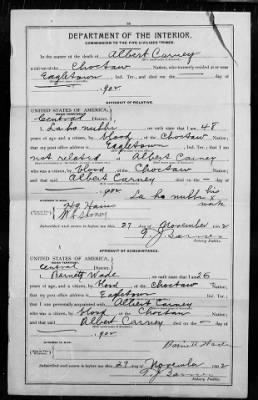 DEPARTMENT OF THE INTERIOR.
COMMISSION TO THE FIVE CIVILIZED TRIBES.
In the matter of the death of Albert Carney
a citizen of the Choctaw Nation, who formerly resided at or near
Eagletown, Ind. Ter., and died on the — day of
, 190
AFFIDAVIT OF RELATIVE.
UNITED STATES OF AMERICA,
INDIAN TERRITORY,
Central District.
I, La ho nubbi, on oath state that I am 48
years of age and a citizen, by blood, of the Choctaw Nation;
that my post office address is Eagletown, Ind. Ter.; that I am
not related to Albert Carney
who was a citizen, by blood, of the Choctaw Nation;
and that said Albert Carney died on the — day of
, 190
La ho nubbi his x mark
27 day of November 1902
Notary Public.
AFFIDAVIT OF ACQUAINTANCE.
UNITED STATES OF AMERICA,
INDIAN TERRITORY,
Central District.
I, Barnett Wade, on oath state that I am 26
years of age, and a citizen by blood of the Choctaw Nation;
that my post office address is Eagletown, Ind. Ter.;
that I was personally acquainted with Albert Carney
who was a citizen, by blood, of the Choctaw Nation;
and that said Albert Carney died on the — day of
, 190
Barnett Wade
Subscribed and sworn to before me this 27 day of November 1902
Notary Public.